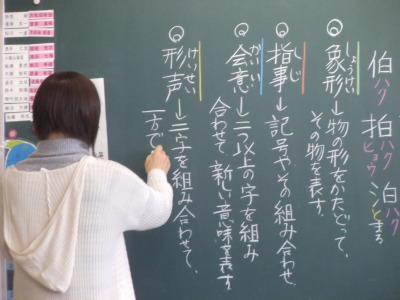 伯 ハク 拍 ハク ヒョウ 泊 ハク とまる
しょうけい
◎象形→物の形をかたどって、
その物を表す。
しじ
◎指事→記号やその組み合わせ
かいい
◎会意→二つ以上の字を組み
合わせて新しい意味を表す
けいせい
◎形声→二字を組み合わせて、
一方で